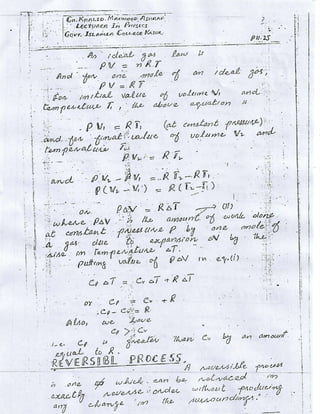 CH. KHALID. MAHMOOD ASHRAF
LECTURER IN PHYSICS
GOVT. ISLAMIA COLLEGE KASUR.
PH.25
An ideal gas law is
PV = nRT
And for one mole of an ideal gas,
PV = RT
For initial value of volume V₁ and
temperature T₁, the above equation is
PV₁ = RT₁ (at constant pressure)
and for final value of volume V₂ and
temperature T₂
PV₂ = RT₂
and PV₂ - PV₁ = RT₂ - RT₁
P(V₂ - V₁) = R(T₂ - T₁)
or PΔV = RΔT → (II)
where PΔV is the amount of work done
at constant pressure P by one mole of
a gas due to expansion ΔV by the
rise in temperature ΔT.
Putting value of PΔV in eq.(i)
Cp ΔT = Cv ΔT + RΔT
or Cp = Cv + R
Cp - Cv = R
Also, we have
Cp > Cv
i.e. Cp is greater than Cv by an amount
equal to R.
REVERSIBL PROCESS.
A reversible process
is one of which can be retraced in
exactly reverse order without producing
any change in the surroundings.